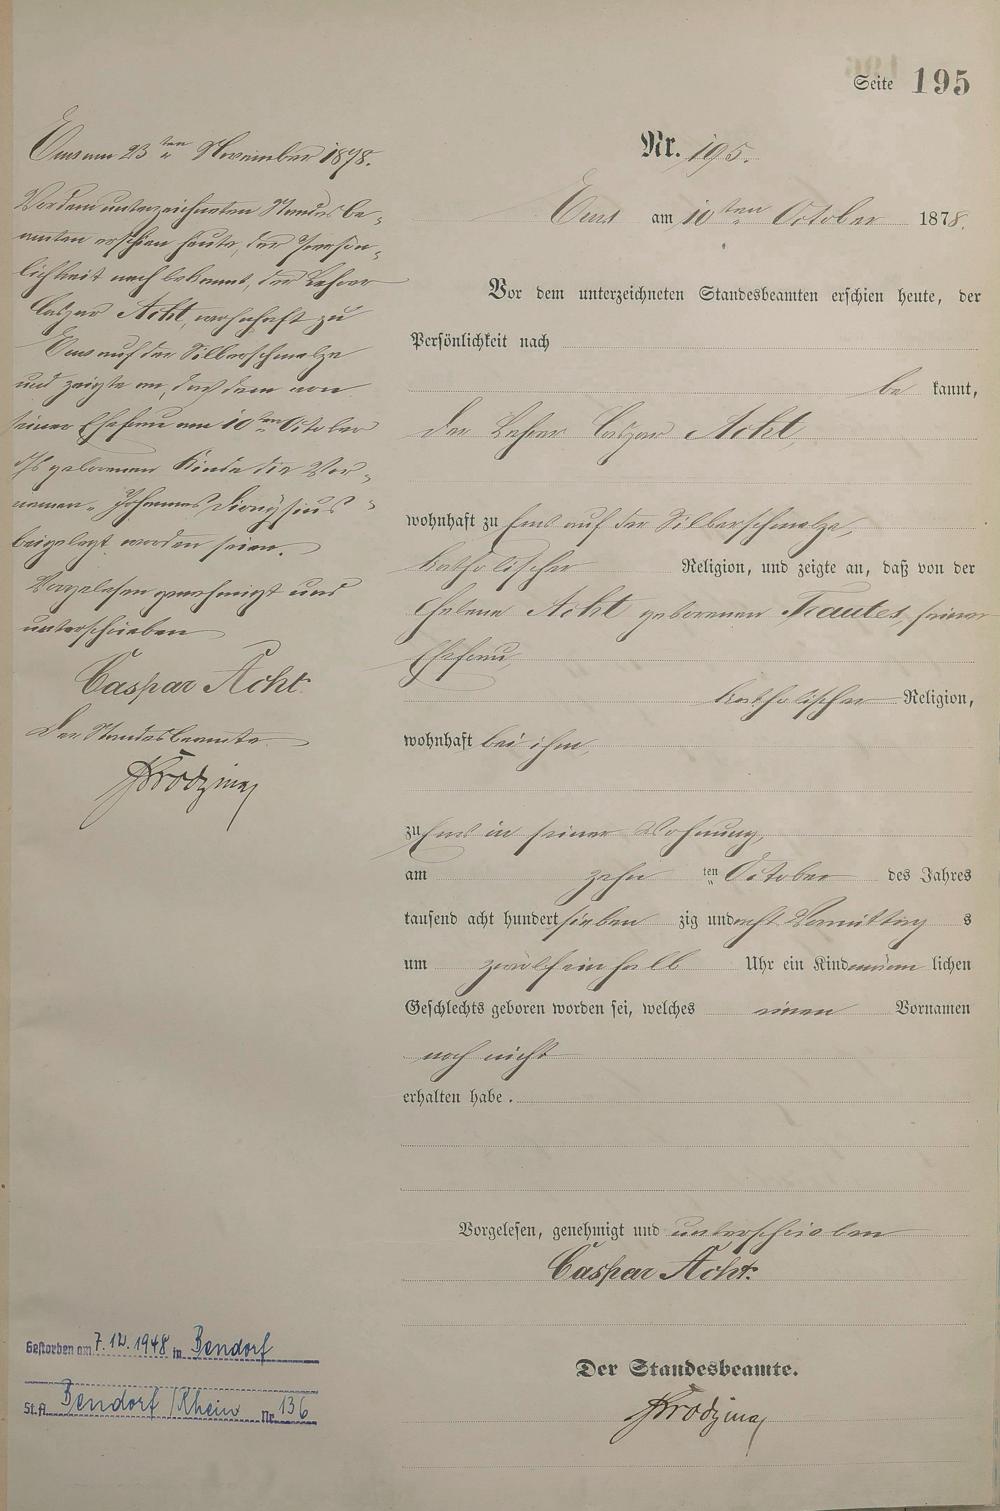 Seite 195
Nr. 195.
Ems am 10ten October 1878.
Vor dem unterzeichneten Standesbeamten erschien heute, der
Persönlichkeit nach
be kannt,
der Lehrer Caspar Acht,
wohnhaft zu Ems auf der Silberschmelze,
katholischer Religion, und zeigte an, daß von der
Helene Acht geborenen Trautes, seiner
Ehefrau
katholischer Religion,
wohnhaft bei ihm
zu Ems in seiner Wohnung,
am zehn ten October des Jahres
tausend acht hundert sieben zig und acht Vormittag s
um zwölfeinhalb Uhr ein Kind männ lichen
Geschlechts geboren worden sei, welches einen Vornamen
noch nicht
erhalten habe.
Vorgelesen, genehmigt und unterschrieben
Caspar Acht.
Der Standesbeamte.
Ems am 23ten November 1878.
Vor dem unterzeichneten Standesbe-
amten erschien heute, der Persön-
lichkeit nach bekannt, der Lehrer
Caspar Acht, wohnhaft zu
Ems auf der Silberschmelze
und zeigte an, daß dem von
seiner Ehefrau am 10ten October
geborenen Kinde die Vor-
namen "Johannes Dionysius"
beigelegt worden seien.
Vorgelesen genehmigt und
unterschrieben
Caspar Acht.
Der Standesbeamte
Gestorben am 7.12.1948 in Bendorf
St.A. Bendorf/Rhein Nr. 136